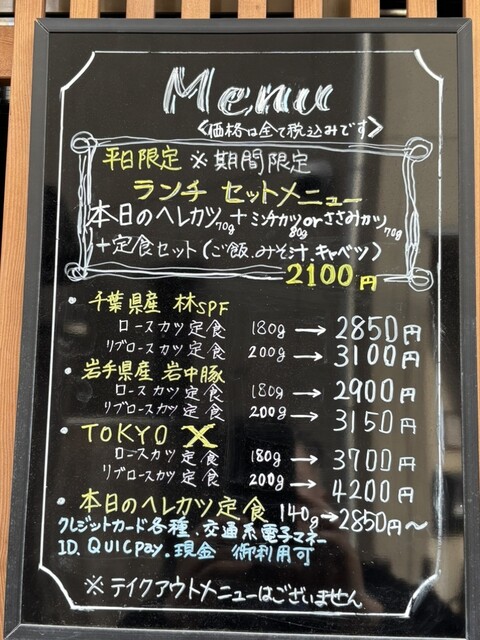 Menu
<価格は全て税込みです>
平日限定 ※期間限定
ランチ セットメニュー
本日のヘレカツ70g+ミンチカツ80gorささみカツ70g
+定食セット(ご飯.みそ汁.キャベツ)
2100円
・千葉県産 林SPF
ロースカツ定食 180g→2850円
リブロースカツ定食 200g→3100円
・岩手県産 岩中豚
ロースカツ定食 180g→2900円
リブロースカツ定食 200g→3150円
・TOKYO X
ロースカツ定食 180g→3700円
リブロースカツ定食 200g→4200円
・本日のヘレカツ定食 140g→2850円〜
クレジットカード各種.交通系電子マネー
ID.QUICPay.現金 御利用可
※テイクアウトメニューはございません